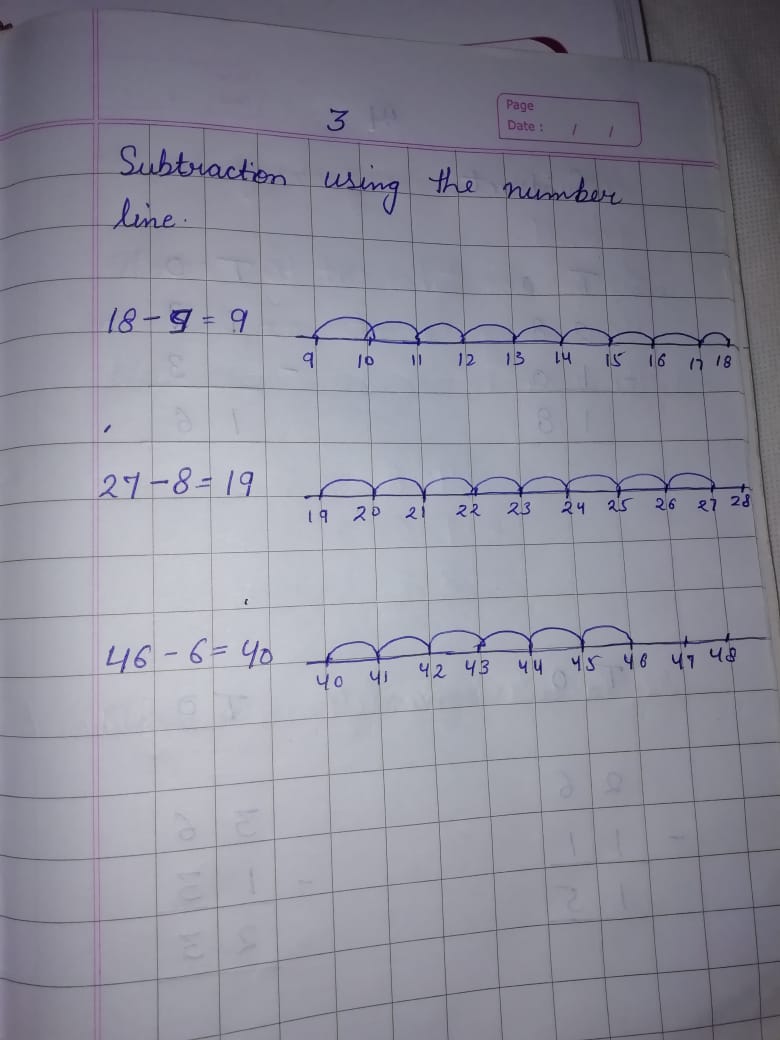 3
Page
Date : / /
Subtraction using the number
line.
18 - 9 = 9
9 10 11 12 13 14 15 16 17 18
27 - 8 = 19
19 20 21 22 23 24 25 26 27 28
46 - 6 = 40
40 41 42 43 44 45 46 47 48